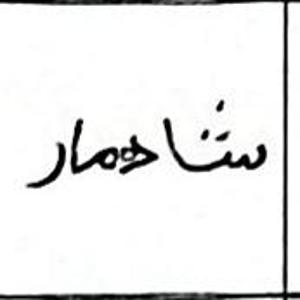 شاهمار